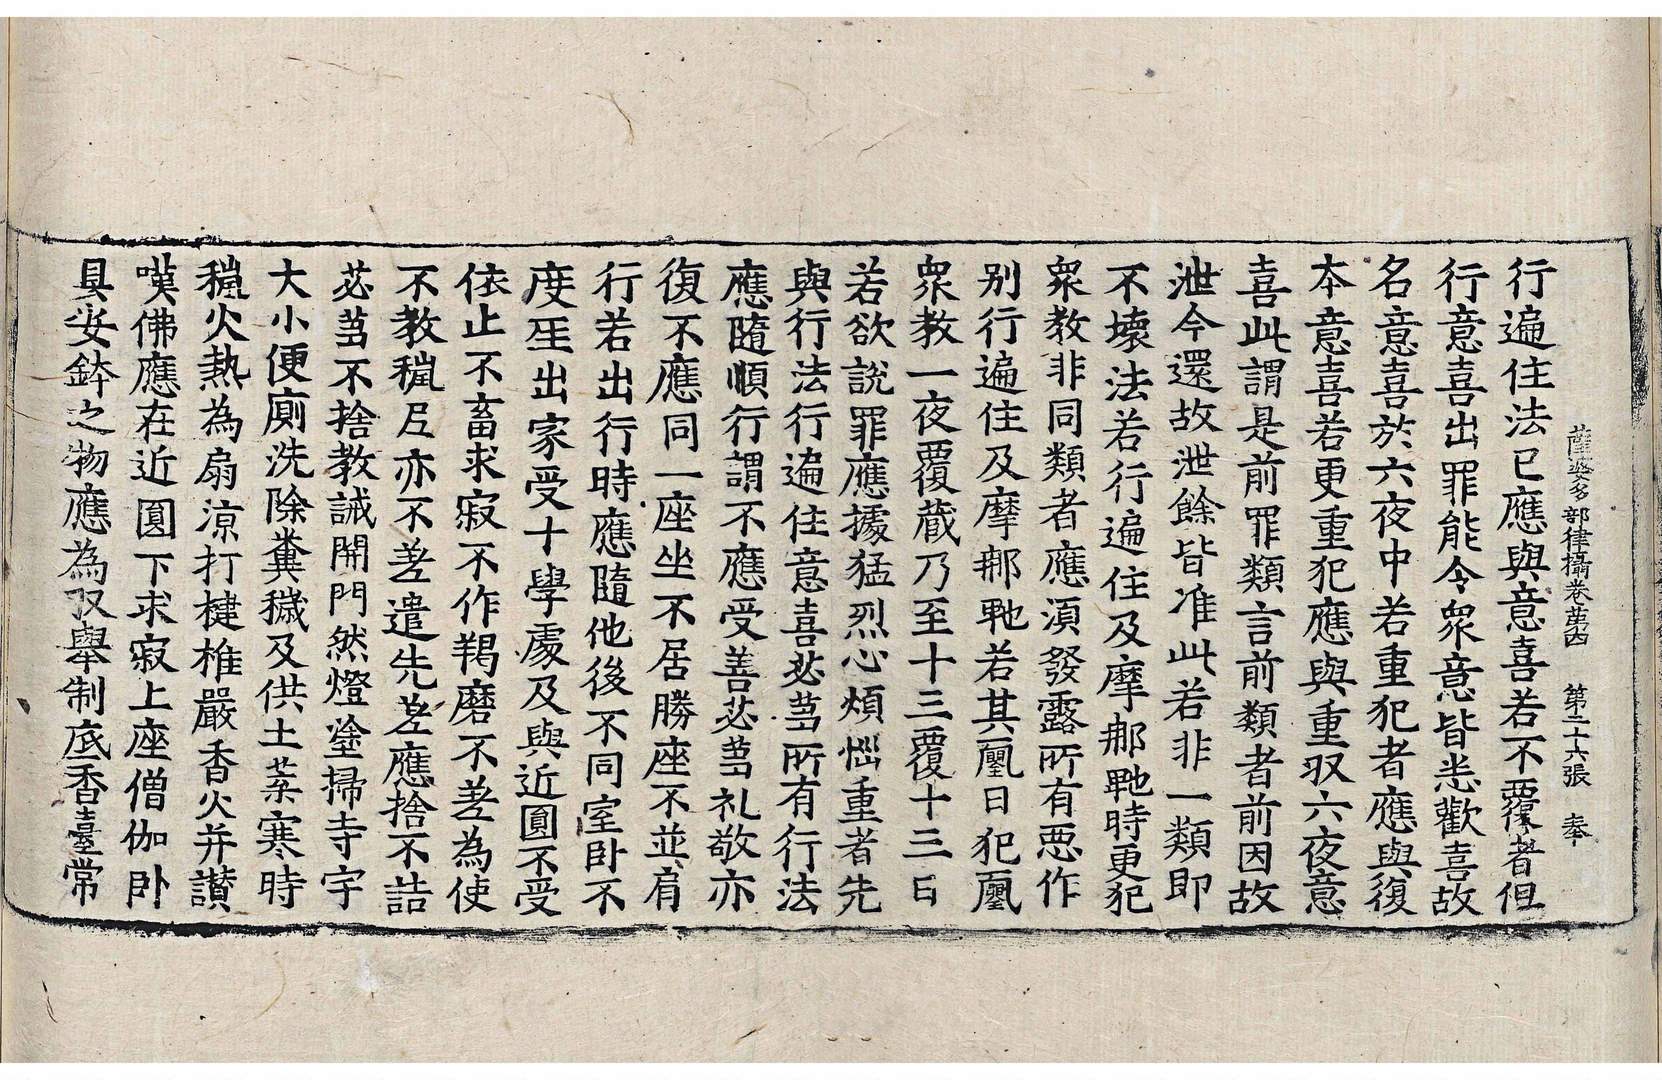 薩婆多部律攝卷苐四　第二十六張　奉
行遍住法已應與意喜若不覆者但
行意喜出罪能令衆意皆悉歡喜故
名意喜於六夜中若重犯者應與復
本意喜若更重犯應與重収六夜意
喜此謂是前罪類言前類者前因故
泄今還故泄餘皆准此若非一類即
不壞法若行遍住及摩郍䩛時更犯
衆教非同類者應須發露所有惡作
別行遍住及摩郍䩛若其屢日犯屢
衆教一夜覆藏乃至十三覆十三日
若欲說罪應據猛烈心煩惱重者先
與行法行遍住意喜苾芻所有行法
應隨順行謂不應受善苾芻礼敬亦
復不應同一座坐不居勝座不並肩
行若出行時應隨他後不同室卧不
度𤯔出家受十學處及與近圓不受
依止不畜求寂不作羯磨不差為使
不教𥠢尼亦不差遣先差應捨不詰
苾芻不捨教誡開門然燈塗掃寺宇
大小便廁洗除糞穢及供土葉寒時
𥠢火熱為扇涼打揵椎嚴香火并讃
嘆佛應在近圓下求寂上座僧伽卧
具安鉢之物應為収舉制底香臺常